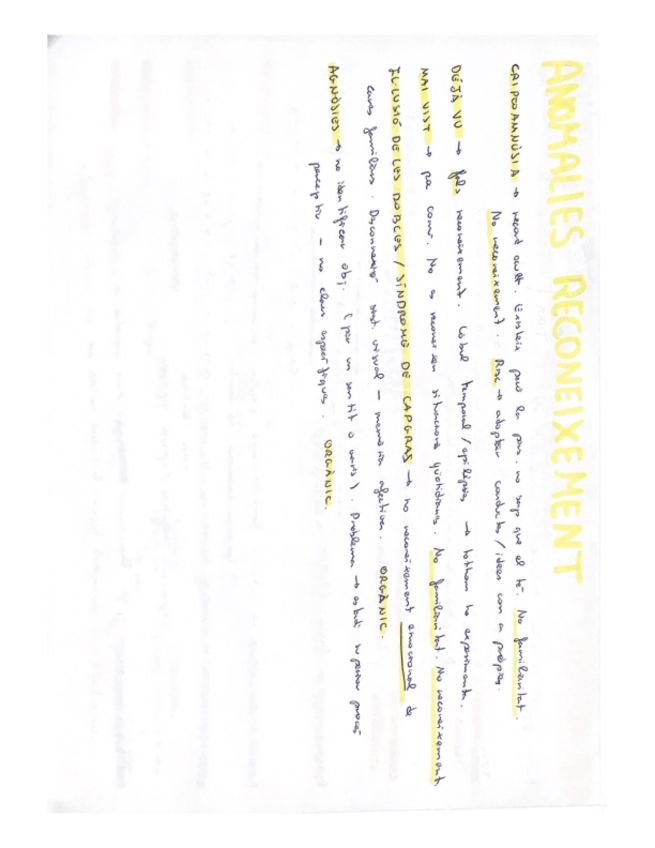 ANOMALIES RECONEIXEMENT
CRIPTOAMNÈSIA → record ocult. Existeix però la pers. no sap que el té. No familiaritat.
No reconeixement. Risc → adoptar conductes / idees com a pròpies.
DÉJÀ VU → fals reconeixement. Lòbul temporal / epilèpsia → tothom ho experimenta.
MAI VIST → pa comú. No es reconeixen situacions quotidianes. No familiaritat. No reconeixement
IL·LUSIÓ DE LES DOBLES / SÍNDROME DE CAPGRAS → no reconeixement emocional de
cares familiars. Desconnexió sist. visual – memòria afectiva. ORGÀNIC.
AGNÒSIES → no identificar obj. (per un sentit o varis). Problema → procés
perceptiu – no claus específiques. ORGÀNIC.